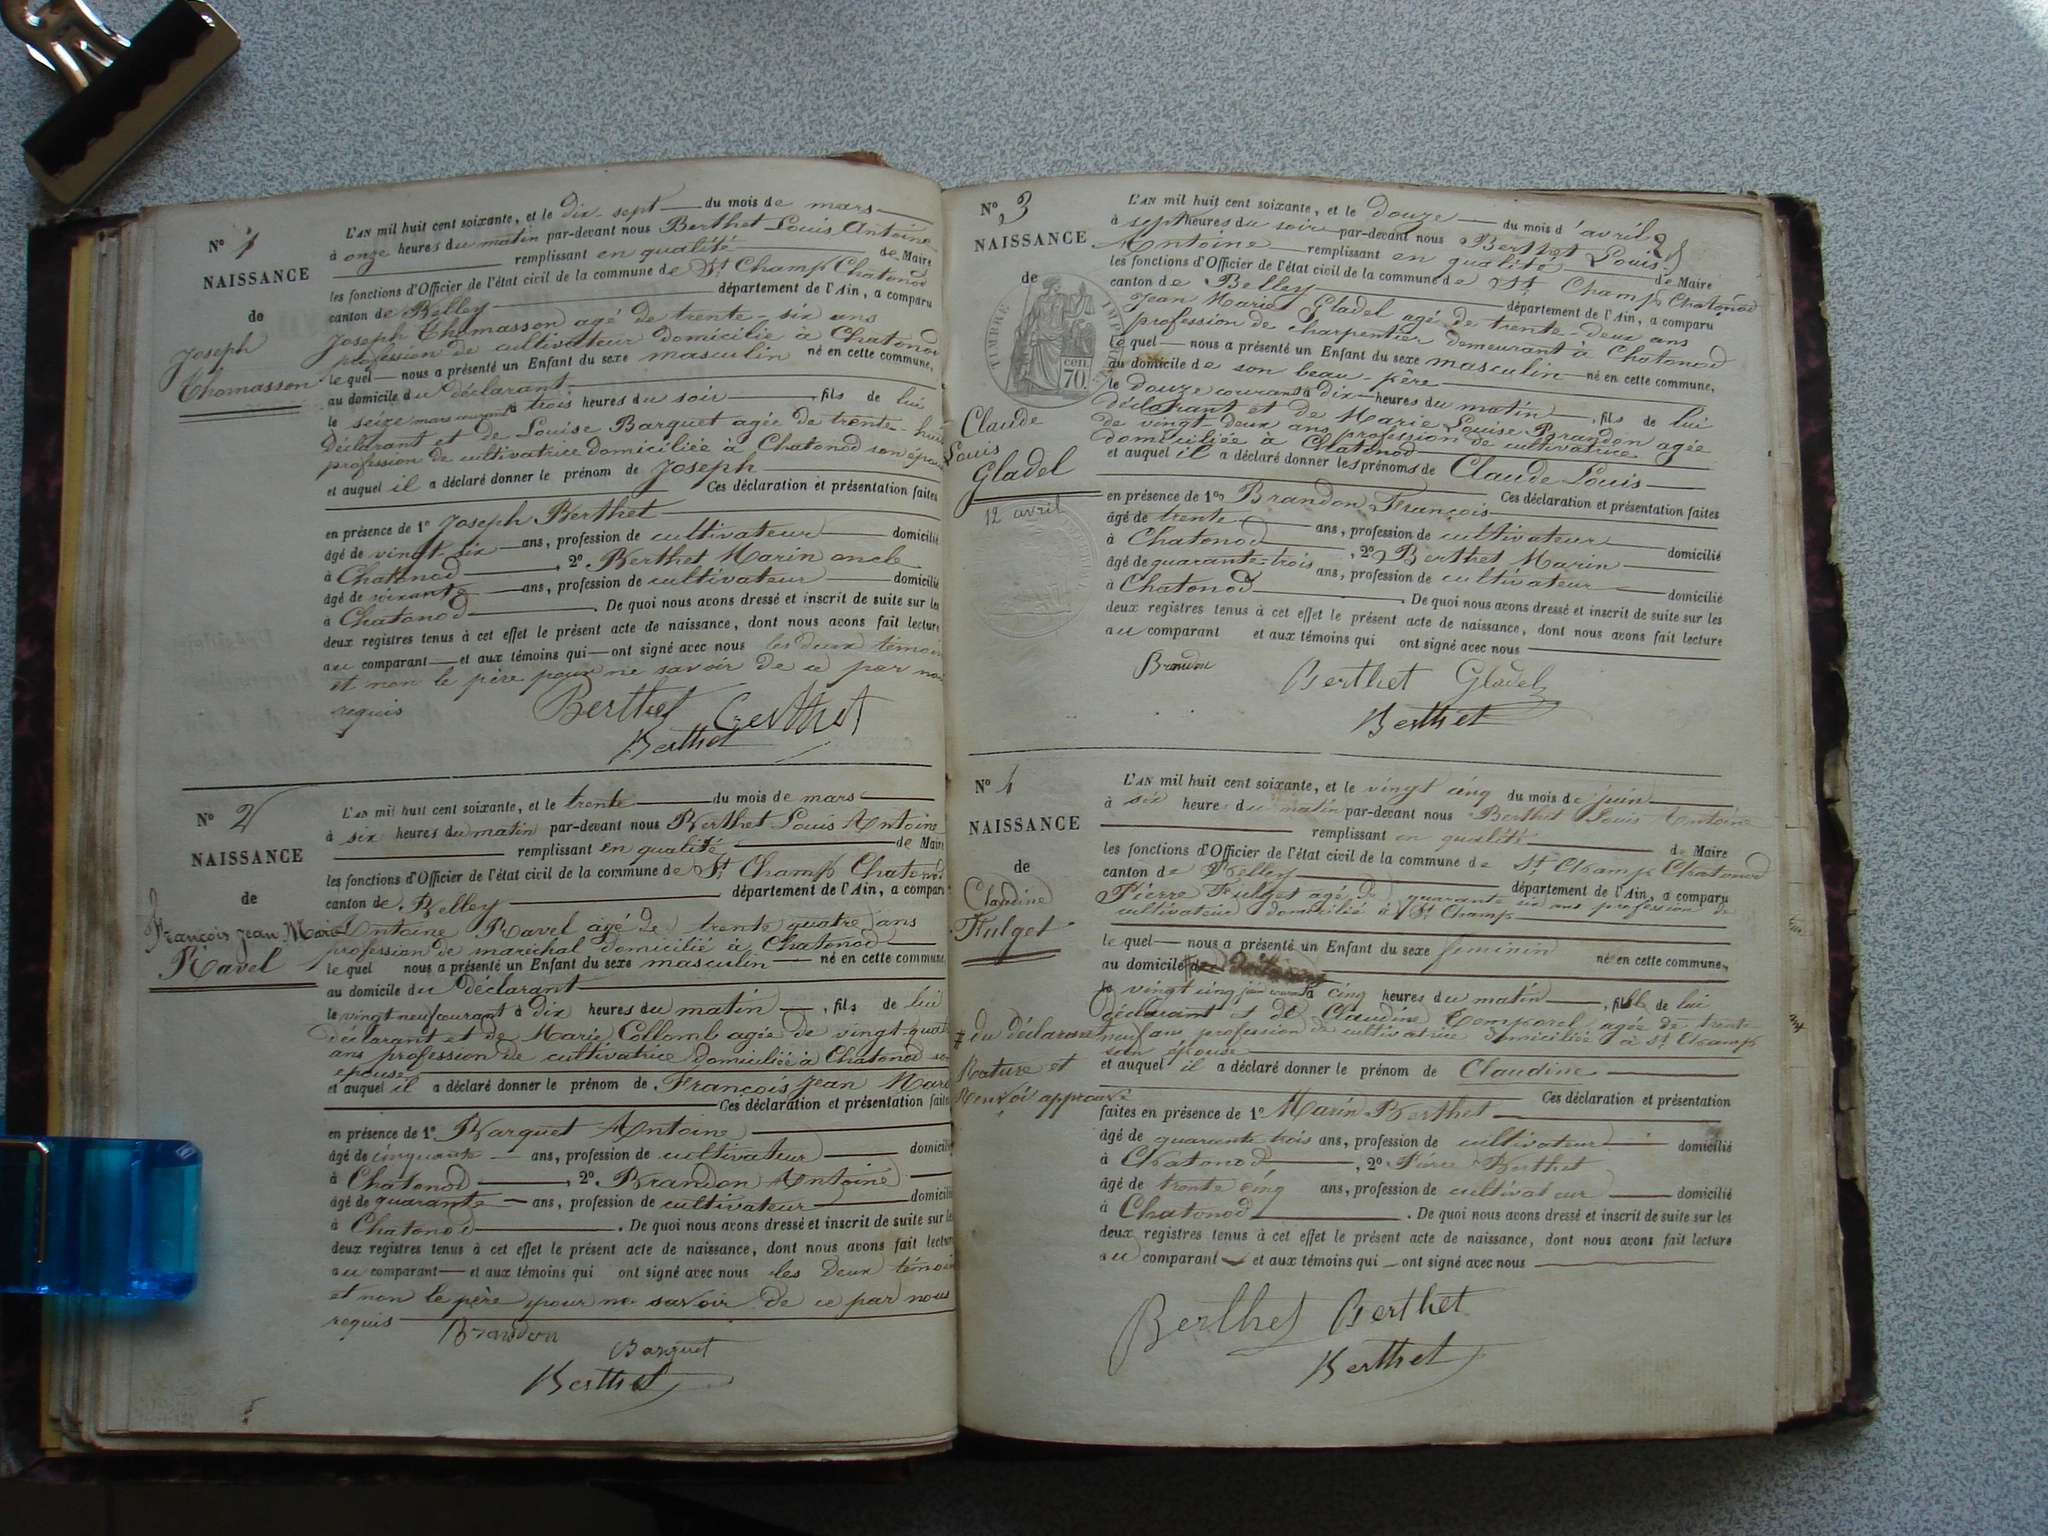 N° 1
NAISSANCE
de
Joseph
Thomasson
L'AN mil huit cent soixante, et le dix-sept du mois de mars
à onze heures du matin par-devant nous Berthet Louis Antoine
remplissant en qualité de Maire
les fonctions d'Officier de l'état civil de la commune de St Champ Chatonod
canton de Belley département de l'Ain, a comparu
Joseph Thomasson agé de trente-six ans
profession de cultivateur domicilié à Chatonod
le quel nous a présenté un Enfant du sexe masculin né en cette commune,
au domicile du déclarant
le seize mars courant à trois heures du soir, fils de lui
déclarant et de Louise Barquet agée de trente-huit
profession de cultivatrice domiciliée à Chatonod son épouse
et auquel il a déclaré donner le prénom de Joseph
Ces déclaration et présentation faites
en présence de 1° Joseph Berthet
âgé de vingt six ans, profession de cultivateur domicilié
à Chatonod, 2° Berthet Marin oncle
âgé de soixante ans, profession de cultivateur domicilié
à Chatonod. De quoi nous avons dressé et inscrit de suite sur les
deux registres tenus à cet effet le présent acte de naissance, dont nous avons fait lecture
au comparant et aux témoins qui ont signé avec nous les deux témoins
et non le père pour ne savoir de ce par nous
requis
Berthet Berthet
Berthet
N° 2
NAISSANCE
de
François Jean Marie
Ravel
L'AN mil huit cent soixante, et le trente du mois de mars
à six heures du matin par-devant nous Berthet Louis Antoine
remplissant en qualité de Maire
les fonctions d'Officier de l'état civil de la commune de St Champ Chatonod
canton de Belley département de l'Ain, a comparu
Antoine Ravel agé de trente quatre ans
profession de maréchal domicilié à Chatonod
le quel nous a présenté un Enfant du sexe masculin né en cette commune,
au domicile du déclarant
le vingt neuf courant à dix heures du matin, fils de lui
déclarant et de Marie Collomb agée de vingt-quatre
ans profession de cultivatrice domiciliée à Chatonod son
epouse
et auquel il a déclaré donner le prénom de François Jean Marie
Ces déclaration et présentation faites
en présence de 1° Barquet Antoine
âgé de cinquante ans, profession de cultivateur domicilié
à Chatonod, 2° Brandon Antoine
âgé de quarante ans, profession de cultivateur domicilié
à Chatonod. De quoi nous avons dressé et inscrit de suite sur les
deux registres tenus à cet effet le présent acte de naissance, dont nous avons fait lecture
au comparant et aux témoins qui ont signé avec nous les deux témoins
et non le père pour ne savoir de ce par nous
requis
Brandon
Barquet
Berthet
N° 3
NAISSANCE
de
TIMBRE IMPÉRIAL
70 cen.
Claude
Louis
Gladel
12 avril
L'AN mil huit cent soixante, et le douze du mois d'avril
à sept heures du soir par-devant nous Berthet Louis
Antoine remplissant en qualité de Maire
les fonctions d'Officier de l'état civil de la commune de St Champ Chatonod
canton de Belley département de l'Ain, a comparu
Jean Marie Gladel agé de trente-deux ans
profession de charpentier demeurant à Chatonod
le quel nous a présenté un Enfant du sexe masculin né en cette commune,
au domicile de son beau-père
le douze courant à dix heures du matin, fils de lui
déclarant et de Marie Louise Brandon agée
de vingt-deux ans profession de cultivatrice
domiciliée à Chatonod
et auquel il a déclaré donner les prénoms de Claude Louis
Ces déclaration et présentation faites
en présence de 1° Brandon François
âgé de trente ans, profession de cultivateur domicilié
à Chatonod, 2° Berthet Marin
âgé de quarante-trois ans, profession de cultivateur domicilié
à Chatonod. De quoi nous avons dressé et inscrit de suite sur les
deux registres tenus à cet effet le présent acte de naissance, dont nous avons fait lecture
au comparant et aux témoins qui ont signé avec nous
Brandon
Berthet Gladel
Berthet
N° 4
NAISSANCE
de
Claudine
Fulget
L'AN mil huit cent soixante, et le vingt cinq du mois de juin
à six heures du matin par-devant nous Berthet Louis Antoine
remplissant en qualité de Maire
les fonctions d'Officier de l'état civil de la commune de St Champ Chatonod
canton de Belley département de l'Ain, a comparu
Pierre Fulget agé de quarante six ans profession de
cultivateur domicilié à St Champ
le quel nous a présenté un Enfant du sexe feminin né en cette commune,
au domicile #
le vingt cinq juin courant à cinq heures du matin, fille de lui
déclarant et de Claudine Temporel agée de trente
neuf ans profession de cultivatrice domiciliée à St Champ
son épouse
# du déclarant
Rature et
Renvoi approuvé
et auquel il a déclaré donner le prénom de Claudine
Ces déclaration et présentation
faites en présence de 1° Marin Berthet
âgé de quarante trois ans, profession de cultivateur domicilié
à Chatonod, 2° Berthet
âgé de trente cinq ans, profession de cultivateur domicilié
à Chatonod. De quoi nous avons dressé et inscrit de suite sur les
deux registres tenus à cet effet le présent acte de naissance, dont nous avons fait lecture
au comparant et aux témoins qui ont signé avec nous
Berthet Berthet
Berthet